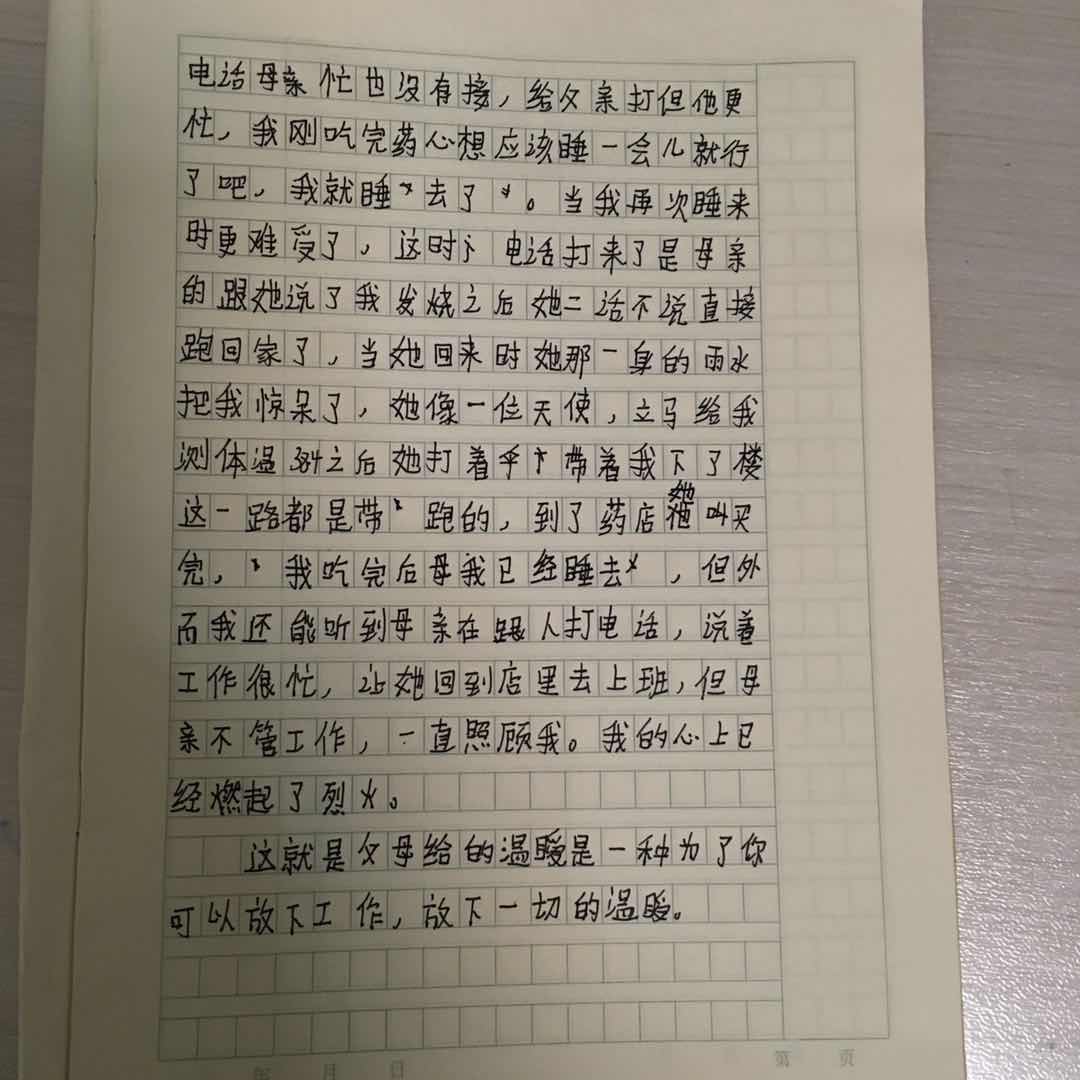 电话母亲忙也没有接，给父亲打但他更
忙，我刚吃完药心想应该睡一会儿就行
了吧，我就睡去了。当我再次睡来
时更难受了，这时电话打来了是母亲
的跟她说了我发烧之后她二话不说直接
跑回家了，当她回来时她那一身的雨水
把我惊呆了，她像一位天使，立马给我
测体温384之后她打着伞带着我下了楼
这一路都是带跑的，到了药店她叫买
完，我吃完后母我已经睡去，但外
而我还能听到母亲在跟人打电话，说着
工作很忙，让她回到店里去上班，但母
亲不管工作，一直照顾我。我的心上已
经燃起了烈火。
这就是父母给的温暖是一种为了你
可以放下工作，放下一切的温暖。
年 月 日
第 页